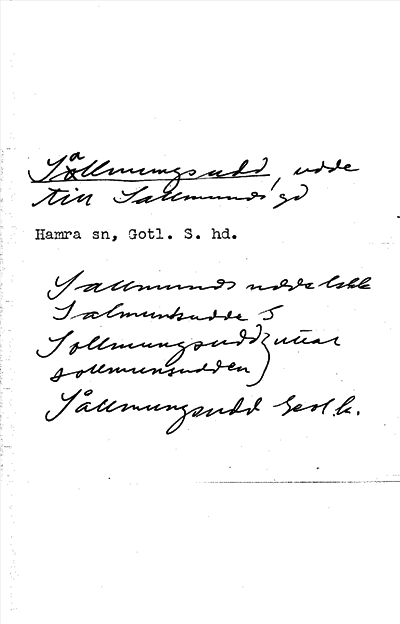 Sållmungsudd, udde
till Sallmunds gd
Hamra sn, Gotl. S. hd.
Sallmunds udde
Salmundsudde S
Sollmungsudd
sollmunsudden
Sållmungsudd Geol. k.